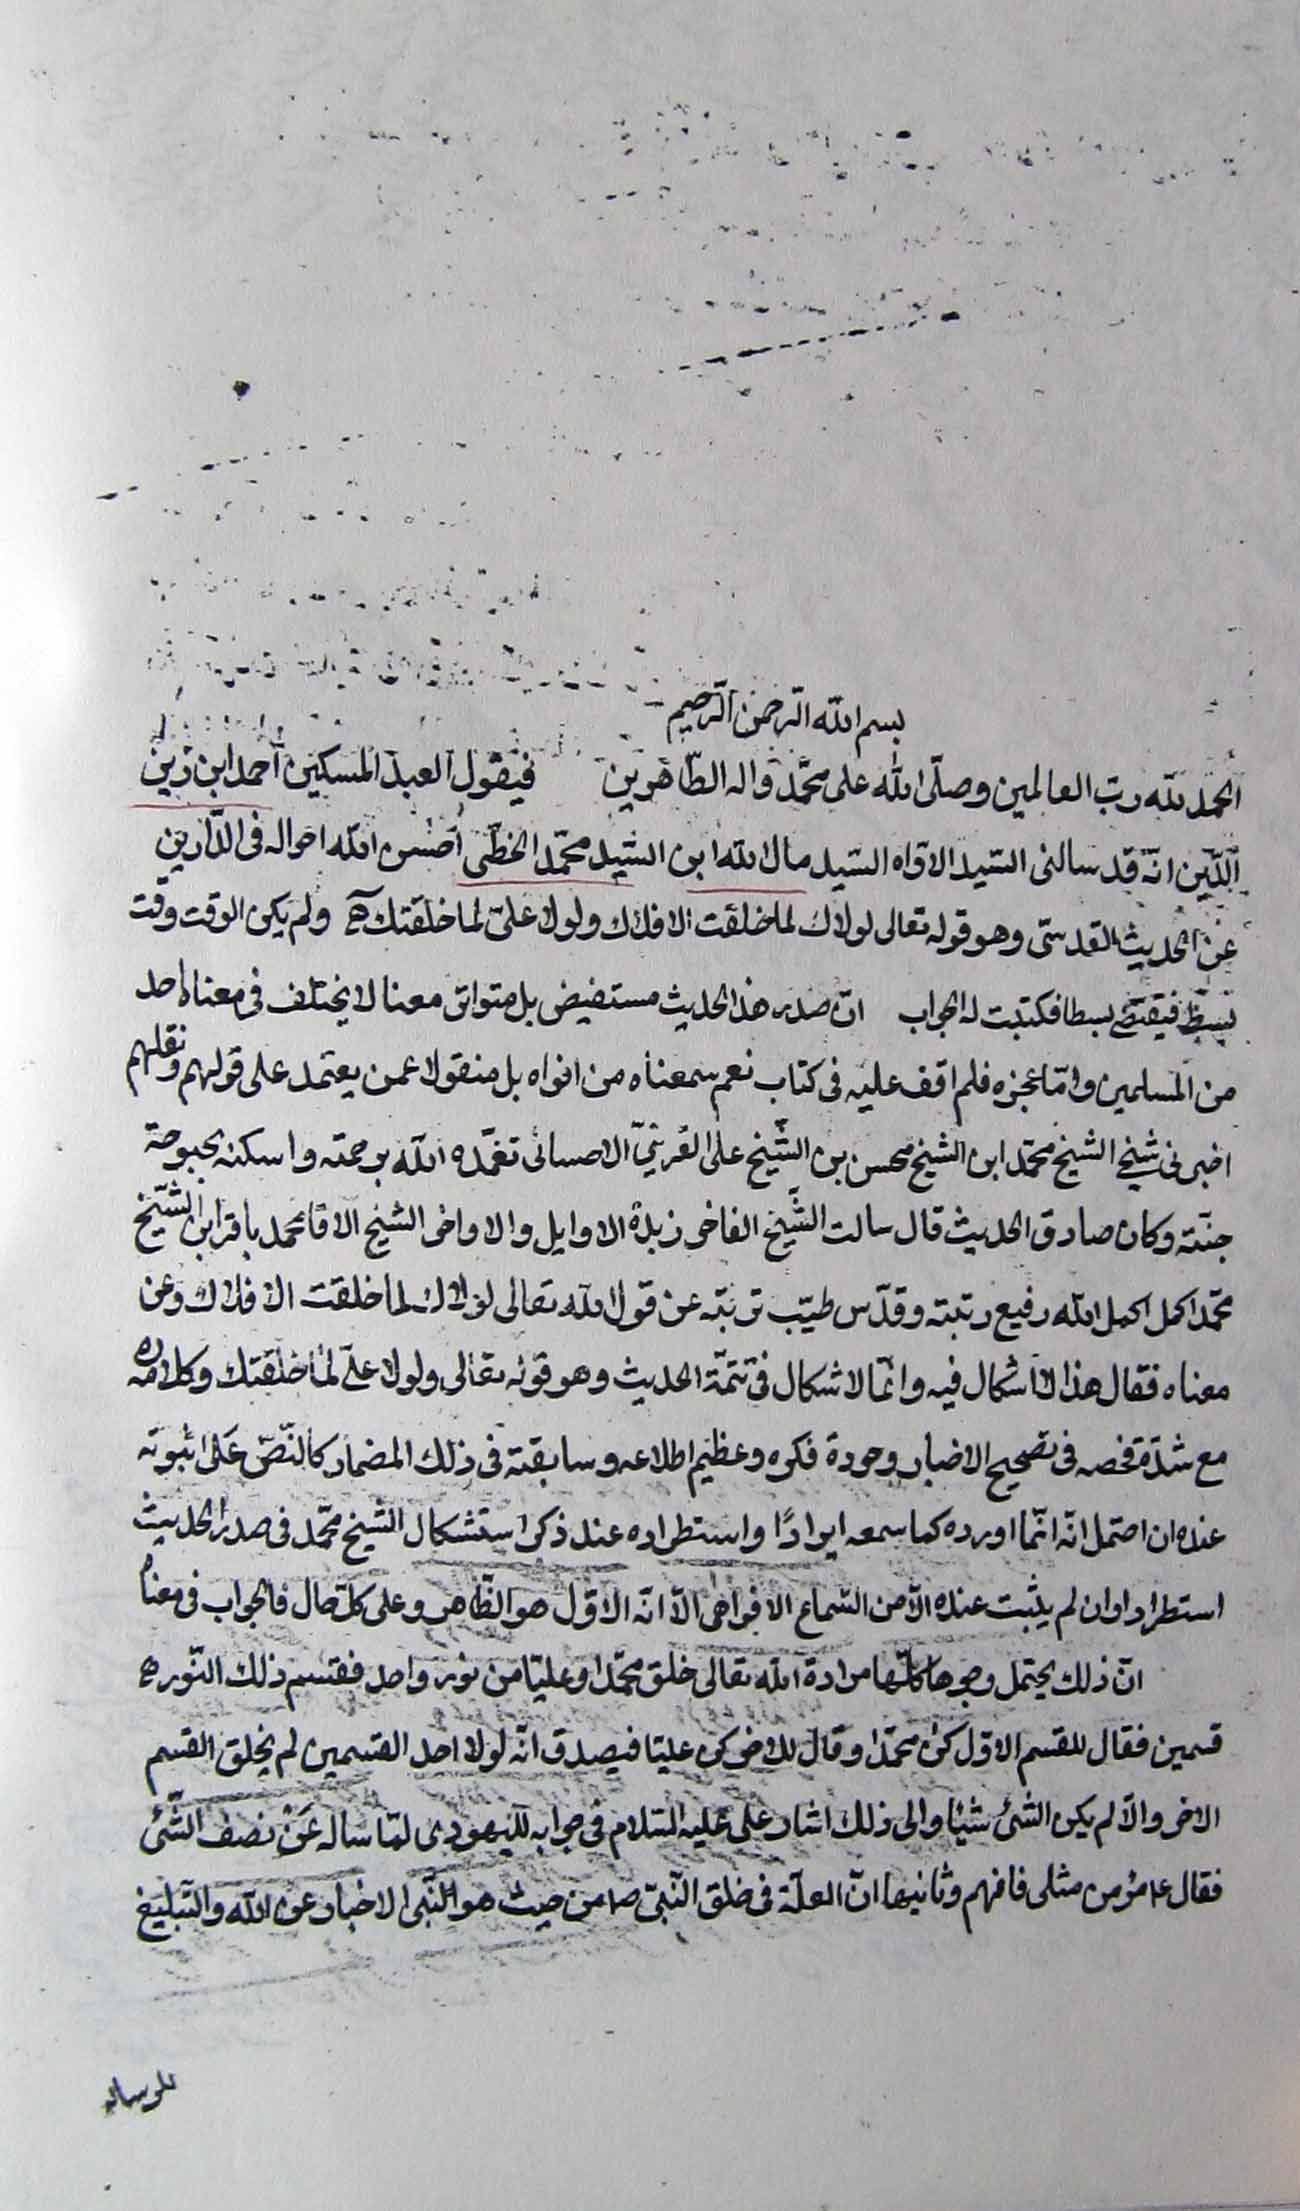 بسم الله الرحمن الرحيم
الحمد لله رب العالمين وصلّى الله على محمّد واله الطّاهرين فيقول العبد المسكين احمد ابن زين
الدّين انّه قد سالنى السّيد الاوّاه السّيد مال الله ابن السّيد محمّد الخطّى احسن الله احواله فى الدّارين
عن الحديث القدسّى وهو قوله تعالى لولاك لما خلقت الافلاك ولولا علىّ لما خلقتك ولم يكن الوقت وقت
بسط فيقتضى بسطا فكتبت له الجواب انّ صدر هذا الحديث مستفيض بل متواتر معنا لا يختلف فى معناه احد
من المسلمين وامّا عجزه فلم اقف عليه فى كتاب نعم سمعناه من افواه بل منقولا عمن يعتمد على قولهم ونقلهم
اخبرنى شيخى الشيخ محمّد ابن الشيخ محسن بن الشّيخ على القرينىّ الاحسائى تغمّده الله برحمته واسكنه بحبوحة
جنّته وكان صادق الحديث قال سالت الشّيخ الفاخر زبدة الاوايل والاواخر الشيخ الاقا محمد باقر ابن الشّيخ
محمّد اكمل اكمل الله رفيع رتبته وقدّس طيّب تربته عن قول الله تعالى لولاك لما خلقت الافلاك وعن
معناه فقال هذا لا اشكال فيه وانّما الاشكال فى تتمّة الحديث وهو قوله تعالى ولولا علىّ لما خلقتك وكلامه ره
مع شدّة فحصه فى تصحيح الاخبار وجودة فكره وعظيم اطلاعه وسابقته فى ذلك المضمار كالنّصّ على ثبوته
عنده ان احتمل انّه انّما اورده كما سمعه ايرادًا واستطراده عند ذكر استشكال الشيخ محمّد فى صدر الحديث
استطرادا وان لم يثبت عنده الّا من السّماع الافواهى الّا انّه الاوّل هو الظّاهر وعلى كلّ حال فالجواب فى معناه
انّ ذلك يحتمل وجوها كلّها مرادة الله تعالى خلق محمّدا وعليّا من نور واحد فقسم ذلك النّور
قسمين فقال للقسم الاوّل كن محمّدا وقال للاخر كن عليّا فيصدق انّه لولا احد القسمين لم يخلق القسم
الاخر والّا لم يكن الشئ شيئا والى ذلك اشار على عليه السّلام فى جوابه لليهودى لمّا ساله عن نصف الشّئ
فقال ع مؤمن مثلى فافهم وثانيها انّ العلّة فى خلق النّبىّ ص من حيث هو النّبى الاخبار عن الله والتّبليغ
للرساله